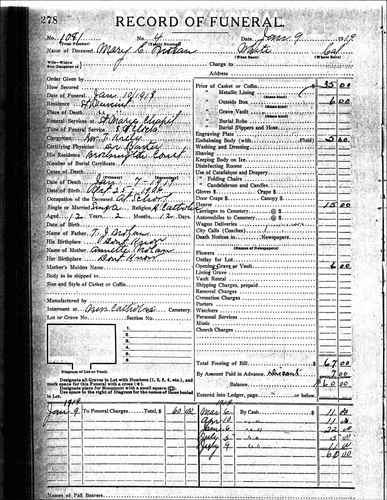 278
RECORD OF FUNERAL.
No. 1081 No. 4 Date, Jan 9 1919
(Total Number) (Yearly Number)
Name of Deceased, Mary C. White Cal
(What Race) (Where Born)
Wife-Widow
Son-Daughter of
Charge to
Address
Order Given by
How Secured
Date of Funeral,
Residence, St Dennis
Place of Death,
Funeral Services at
Time of Funeral Service,
Clergyman,
Certifying Physician,
His Residence, Court
Number of Burial Certificate
Cause of Death
Date of Death, Jan - 7 -
Date of Birth, Oct
Occupation of the Deceased, At School
Single or Married, Religion, Catholic
Aged, 12 Years, 2 Months, 12 Days
Name of Father, T. J.
His Birthplace, Dont Know
Name of Mother,
Her Birthplace, Dont Know
Mother's Maiden Name,
Body to be shipped to
Size and Style of Casket or Coffin,
Manufactured by
Interment at Catholic Cemetery.
Lot or Grave No. Section No.
Diagram of Lot or Vault.
Designate all Graves in Lot with Numbers (1, 2, 3, 4, etc.), and
mark space for this Funeral with a cross
Designate place for Monument with a small square
Use space to the right of Diagram for the names of those buried
in Lot.
Price of Casket or Coffin $ 35 00
Metallic Lining
Outside Box 6 00
Grave Vault
Burial Robe
Burial Slippers and Hose
Engraving Plate
Embalming Body (with Fluid) 5 00
Washing and Dressing
Shaving
Keeping Body on Ice
Disinfecting Rooms
Use of Catafalque and Drapery
" Folding Chairs
" Candelabrum and Candles
Gloves $ Crape $
Door Crape Canopy $
Hearse 15 00
Carriages to Cemetery @ $
Automobiles to Cemetery @ $
Wagon Deliveries
City Calls (Coaches)
Death Notices in Newspapers
(Names of Newspapers)
Flowers
Outlay for Lot
Opening Grave or Vault 6 00
Lining Grave
Vault Rental
Shipping Charges, prepaid
Removal Charges
Cremation Charges
Posters
Watchers
Personal Services
Music
Church Charges
Total Footing of Bill $ 67 00
By Amount Paid in Advance, 7 00
Balance $ 60 00
Entered into Ledger, page or below.
1919 1919
Jan 9 To Funeral Charges, Total, $ 60 00 Mar 6 By Cash $ 11 00
Names of Pall Bearers